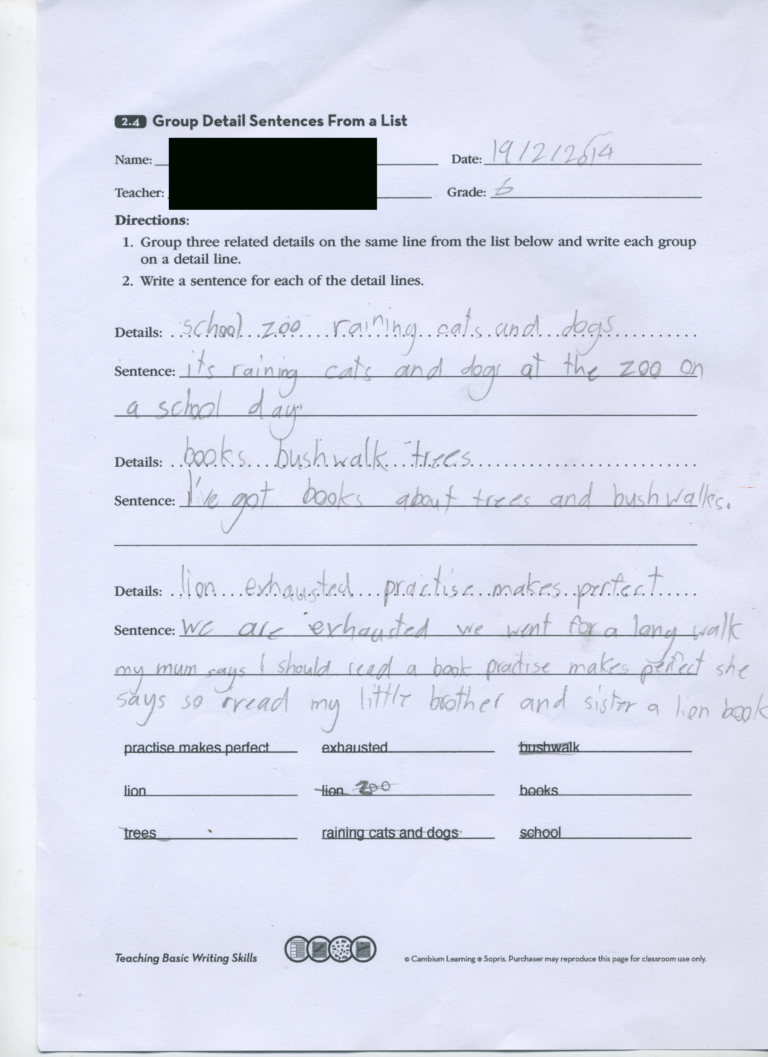 2.4 Group Detail Sentences From a List
Name: Date: 19/2/2014
Teacher: Grade: 6
Directions:
1. Group three related details on the same line from the list below and write each group
on a detail line.
2. Write a sentence for each of the detail lines.
Details: school zoo raining cats and dogs
Sentence: it's raining cats and dogs at the zoo on
a school day
Details: books bushwalk trees
Sentence: I've got books about trees and bushwalks.
Details: lion exhausted practise makes perfect
Sentence: we are exhausted we went for a long walk
my mum says I should read a book practise makes perfect she
says so I read my little brother and sister a lion book
practise makes perfect exhausted bushwalk
lion lion zoo books
trees raining cats and dogs school
Teaching Basic Writing Skills © Cambium Learning ® Sopris. Purchaser may reproduce this page for classroom use only.